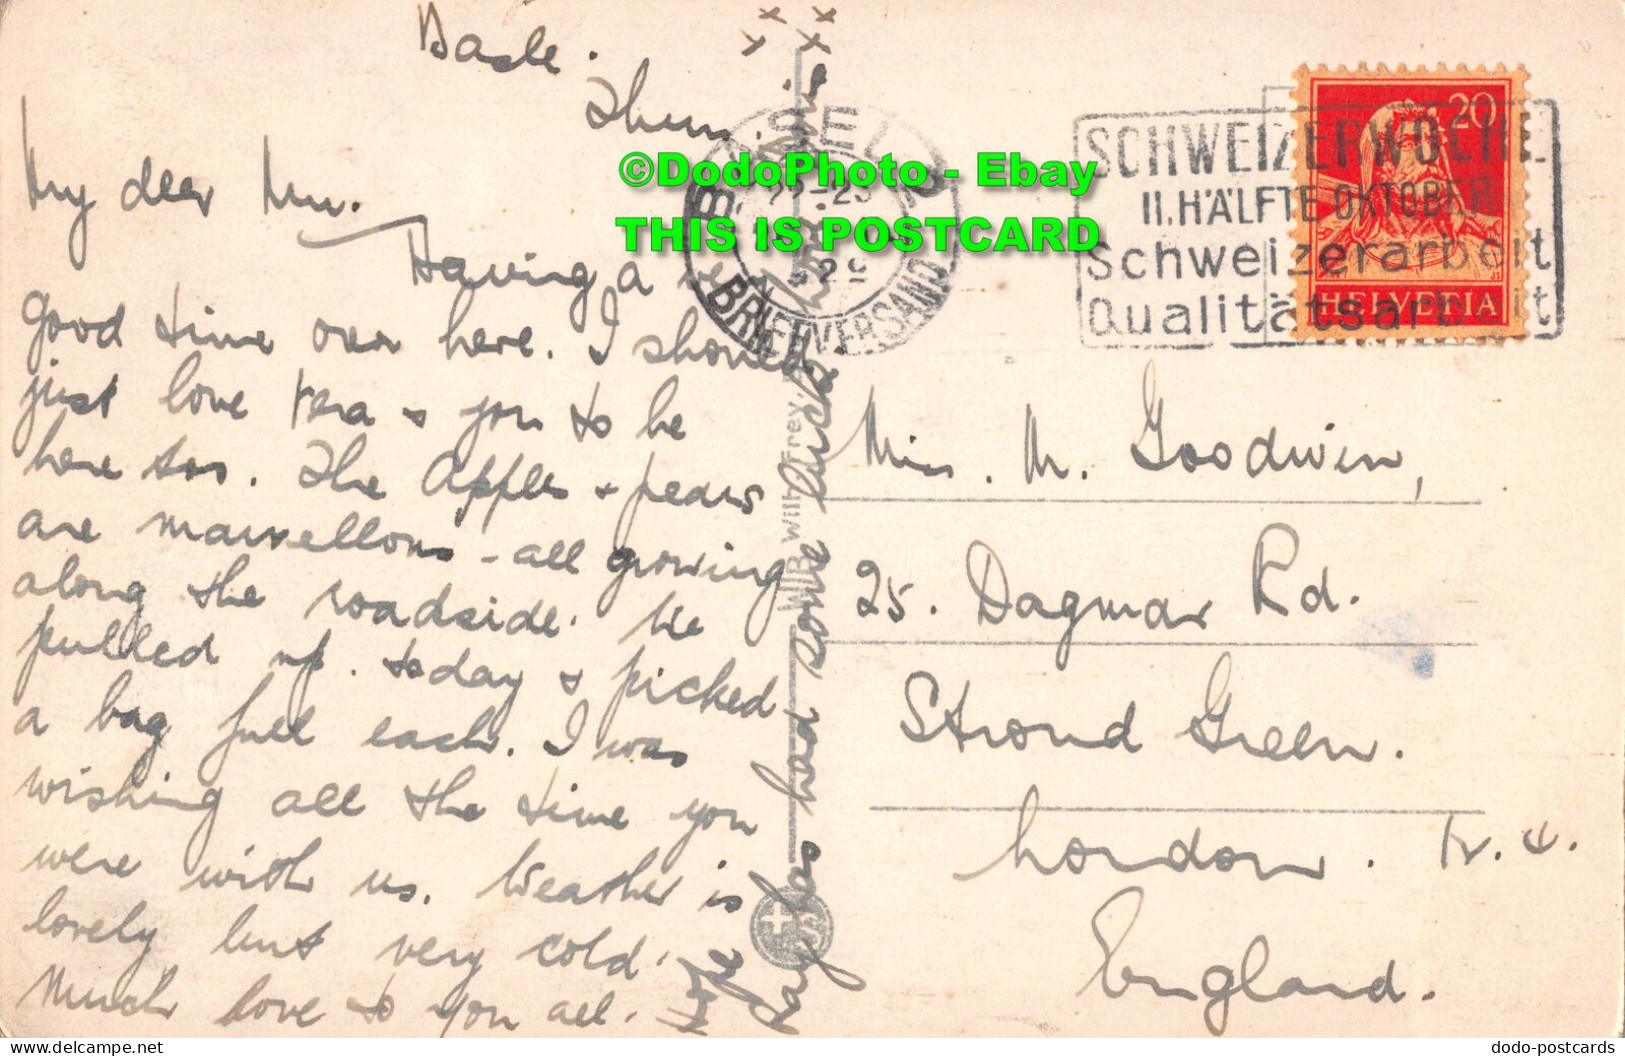 Basle.
Thurs.
My dear Mu.
Having a
good time over here. I should
just love Vera & you to be
here too. The apples & pears
are marvellous - all growing
along the roadside. We
pulled up today & picked
a bag full each. I was
wishing all the time you
were with us. Weather is
lovely but very cold.
Much love to you all.
Hope Ray has had some luck
x x
x x
BASEL
22-23
29
BRIEFVERSAND
SCHWEIZERWOCHE
II. HÄLFTE OKTOBER
Schweizerarbeit
Qualitätsarbeit
20
HELVETIA
Miss. M. Goodwin,
25. Dagmar Rd.
Stroud Green.
London. N. 4.
England.
©DodoPhoto - Ebay
THIS IS POSTCARD
dodo-postcards